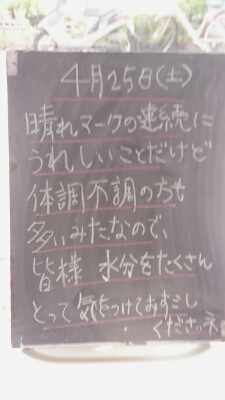 4月25日(土)
晴れマークの連続に
うれしいことだけど
体調不調の方も
多いみたなので、
皆様 水分をたくさん
とって気をつけておすごし
くださいネ